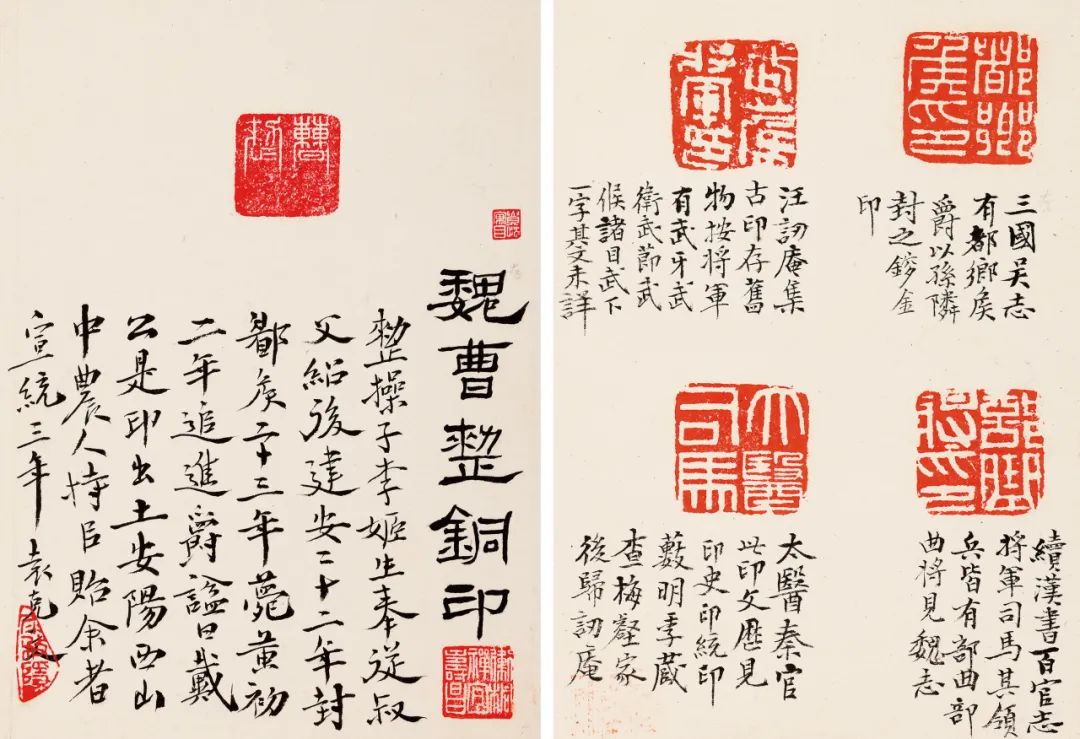 曹整
魏曹整銅印
整操子李姬生奉從叔
父紹後建安二十二年封
郿矦二十三年薨黃初
二年追進爵諡曰戴
公是印出土安陽西山
中農人持㠯貽余者
宣統三年 袁克文
都鄉矦印
三國吳志
有都鄉矦
爵以孫隣
封之金
印
汪訒庵集
古印存舊
物按將軍
有武牙武
衛武節武
候諸目武下
一字其文未詳
部曲將印
續漢書百官志
將軍司馬其領
兵皆有部曲部
曲將見魏志
大醫司馬
太醫秦官
此印文歷見
印史印統印
藪明季藏
查梅壑家
後歸訒庵